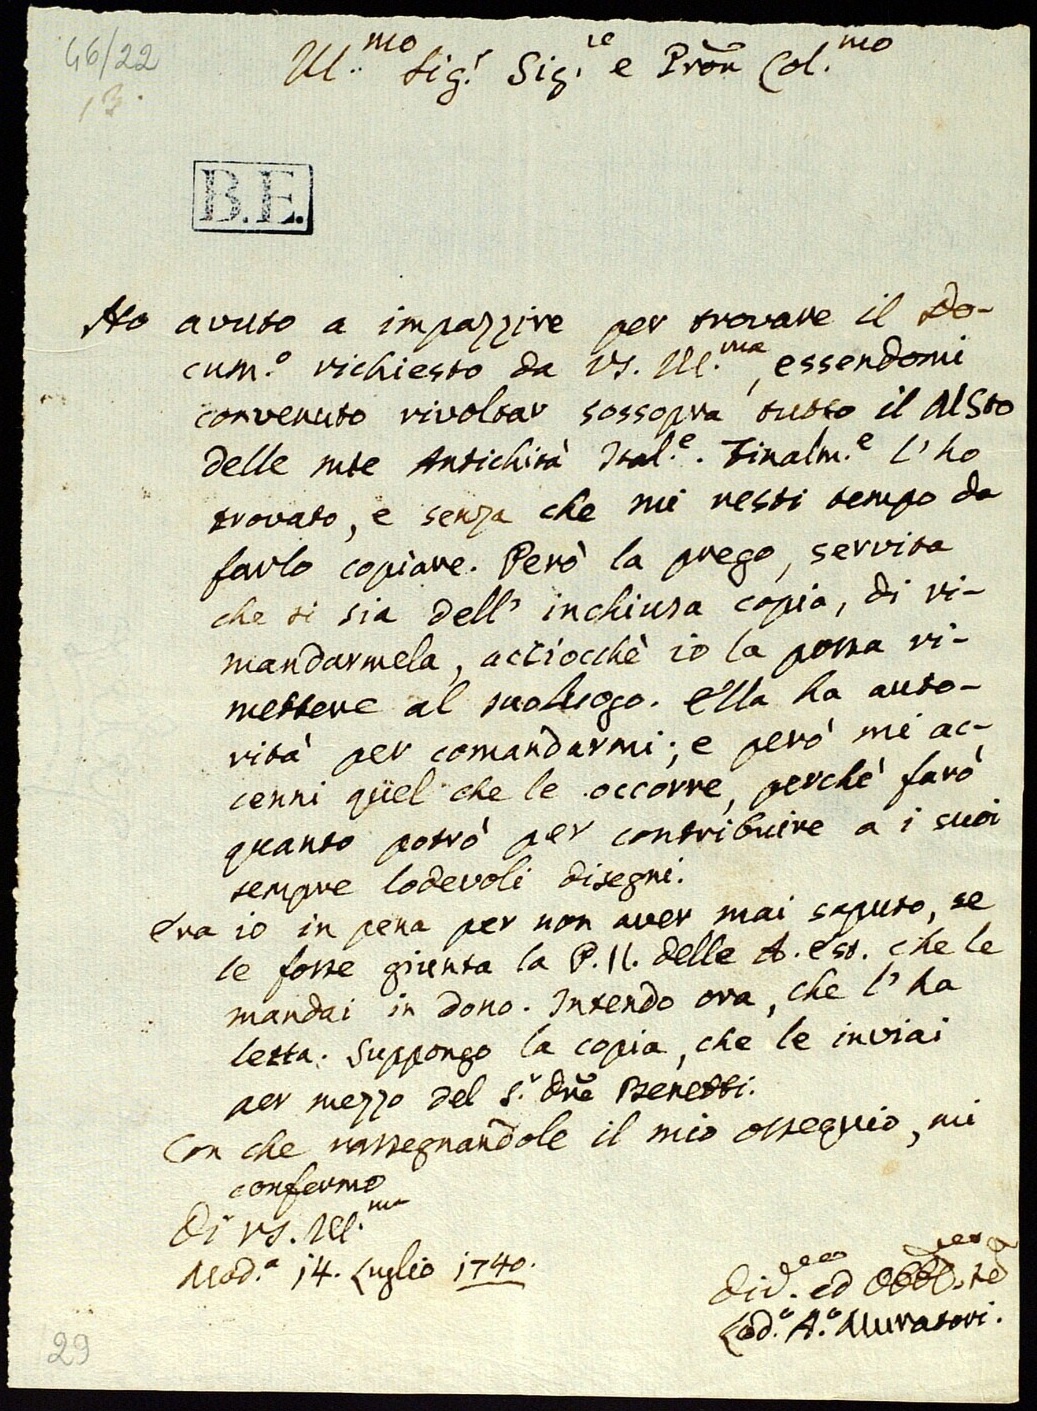 46/22
13.
Ill.mo Sig.r Sig.re e Pron Col.mo
B.E.
Ho avuto a impazzire per trovare il Do-
cum.o richiesto da VS. Ill.ma, essendomi
convenuto rivoltar sossopra tutto il MSto
delle mie Antichità Ital.e. Finalm.e l'ho
trovato, e senza che mi resti tempo da
farlo copiare. Però la prego, servita
che si sia dell' inchiusa copia, di ri-
mandarmela, acciocchè io la possa ri-
mettere al suo luogo. Ella ha auto-
rità per comandarmi; e però mi ac-
cenni quel che le occorre, perchè farò
quanto potrò per contribuire a i suoi
sempre lodevoli disegni.
Era io in pena per non aver mai saputo, se
le fosse giunta la P. II. delle A. Est. che le
mandai in dono. Intendo ora, che l'ha
letta. Suppongo la copia, che le inviai
per mezzo del S.r Dre Benetti.
Con che rassegnandole il mio ossequio, mi
confermo
Di VS. Ill.ma
Mod.a 14. Luglio 1740.
Div.mo ed Obbl.mo
Lod.o A.o Muratori.
29